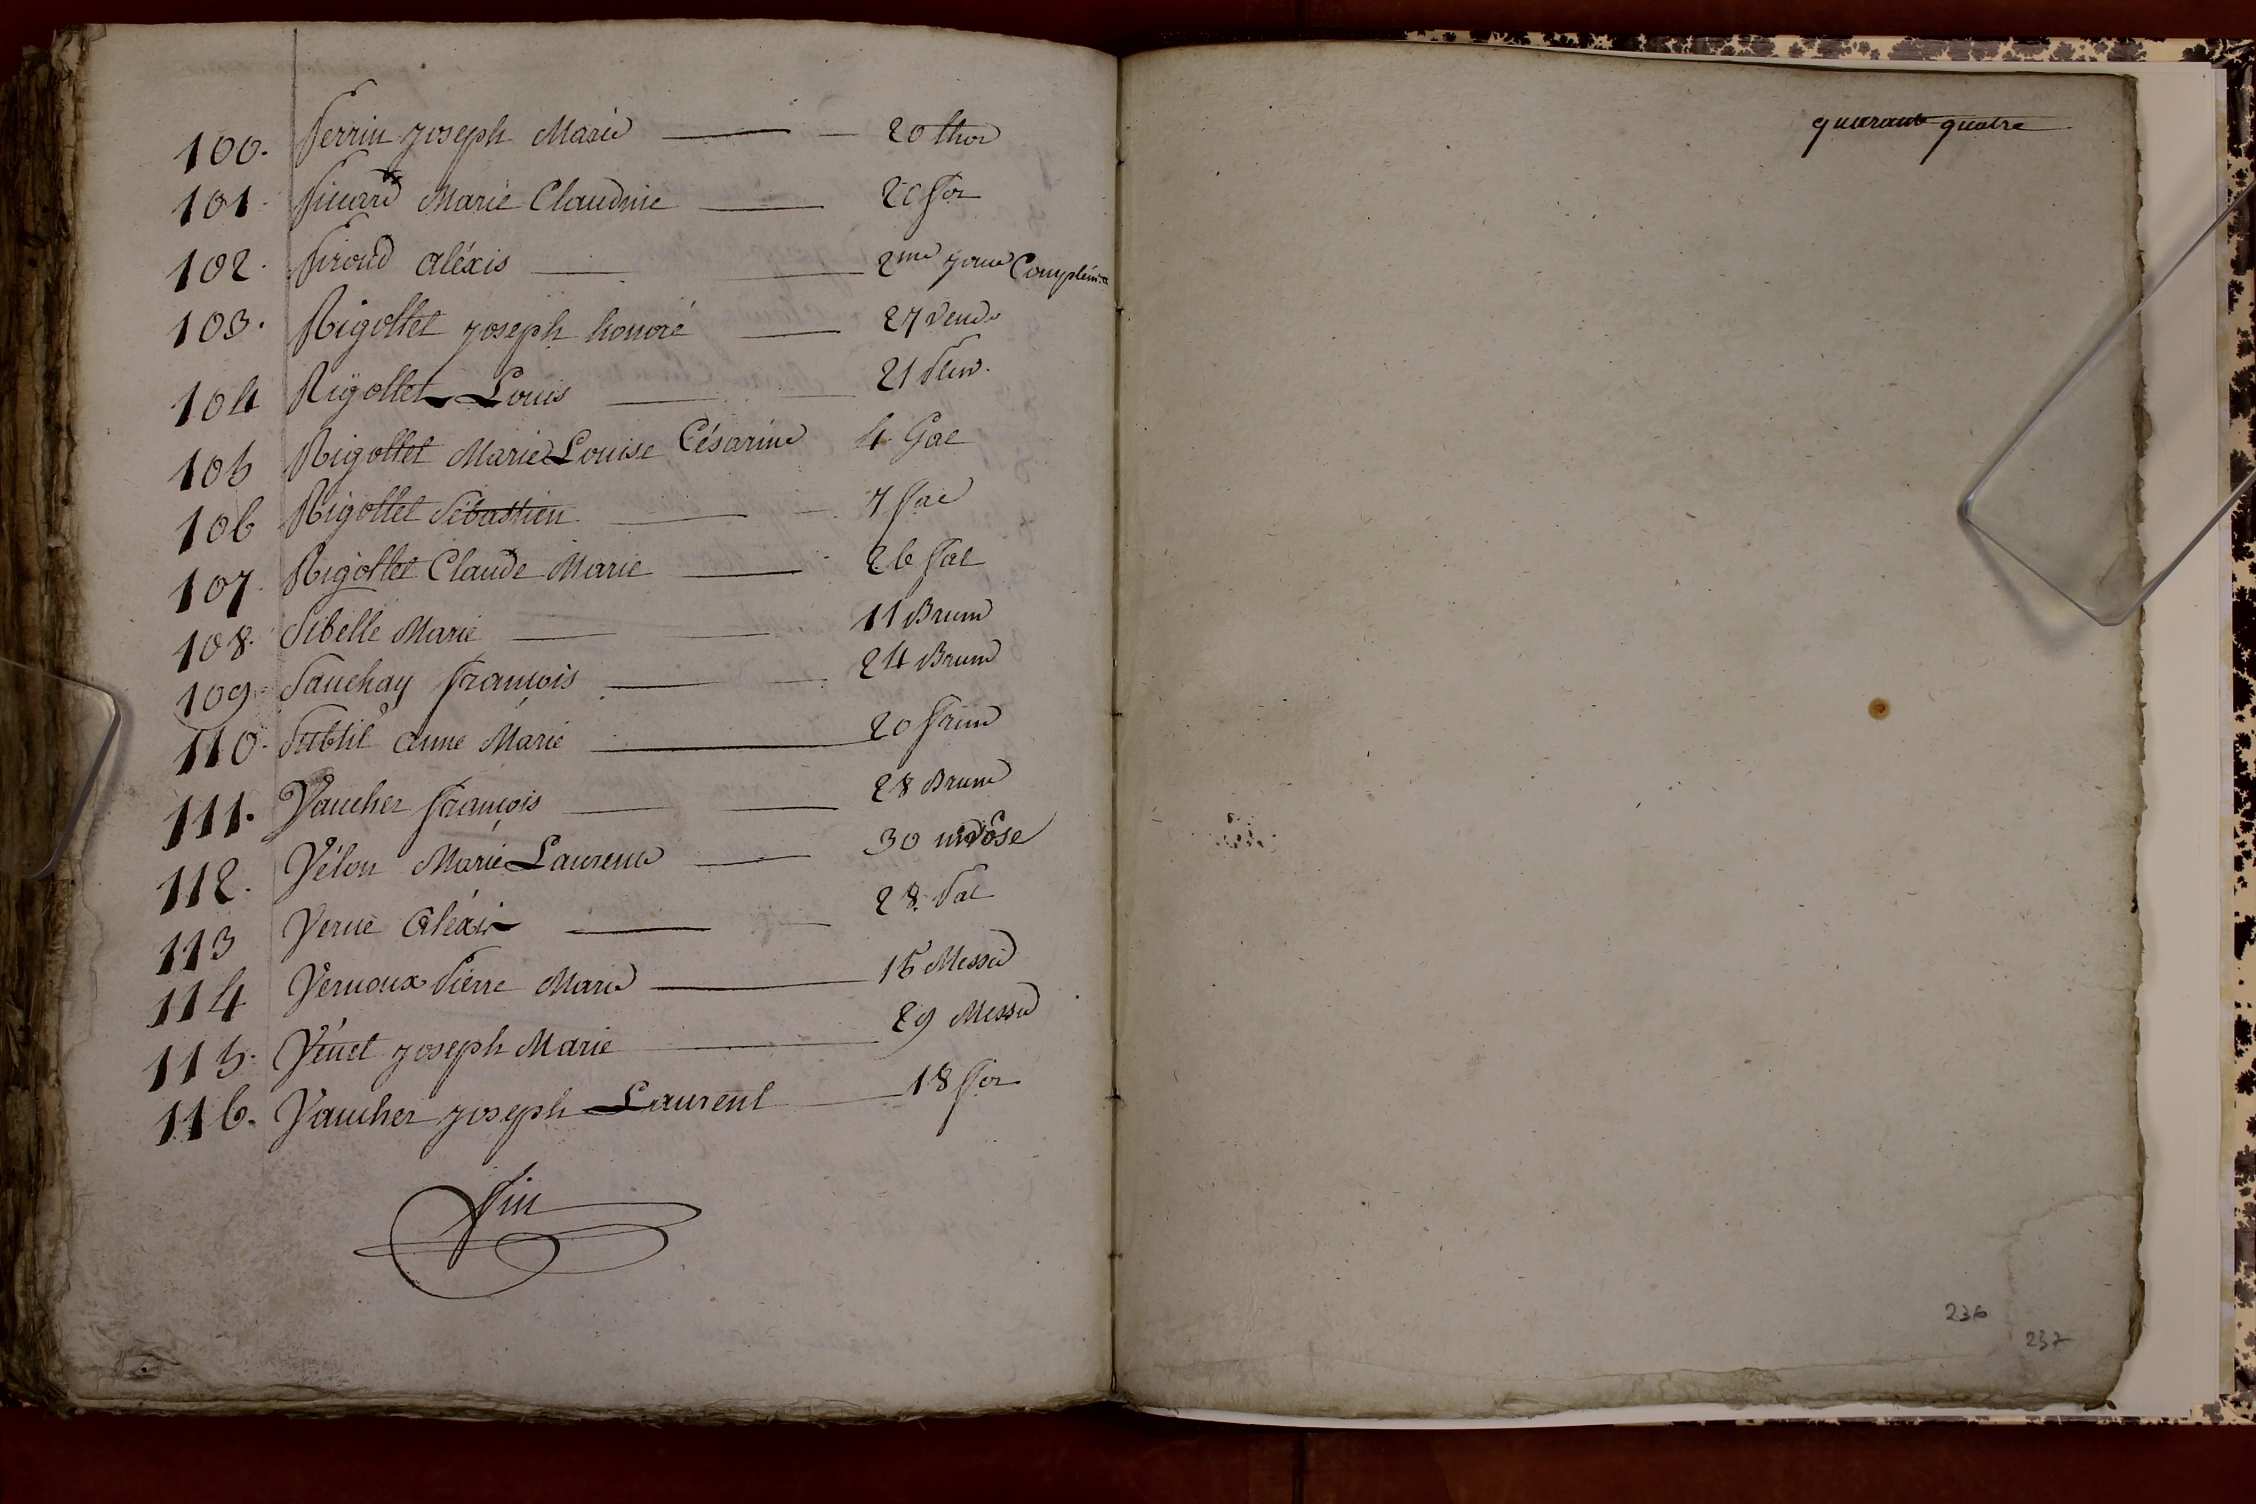 100. Perrin joseph Marie 20 ther
101. Picard Marie Claudine 20 ger
102. Piroud aléxis 2me jour Complém.re
103. Rigottet joseph honoré 27 vend.
104 Rigottet Louis 21 Pluv.
105 Rigottet Marie Louise Césarine 4 Gal
106 Rigottet Sébastien 7 flal
107. Rigottet Claude Marie 26 flal
108. Sibelle Marie 11 Brum
109. Sauchay françois 24 Brum
110. Subtil anne Marie 20 frim
111. Vaucher françois 28 Brum
112. Vélon Marie Laurence 30 nivôse
113 Verne aléxis 28
114 Vernoux Pierre Marie 15 Messid
115. Vénet joseph Marie 29 Messid
116. Vaucher joseph Laurent 18
fin
quarante quatre
236
237